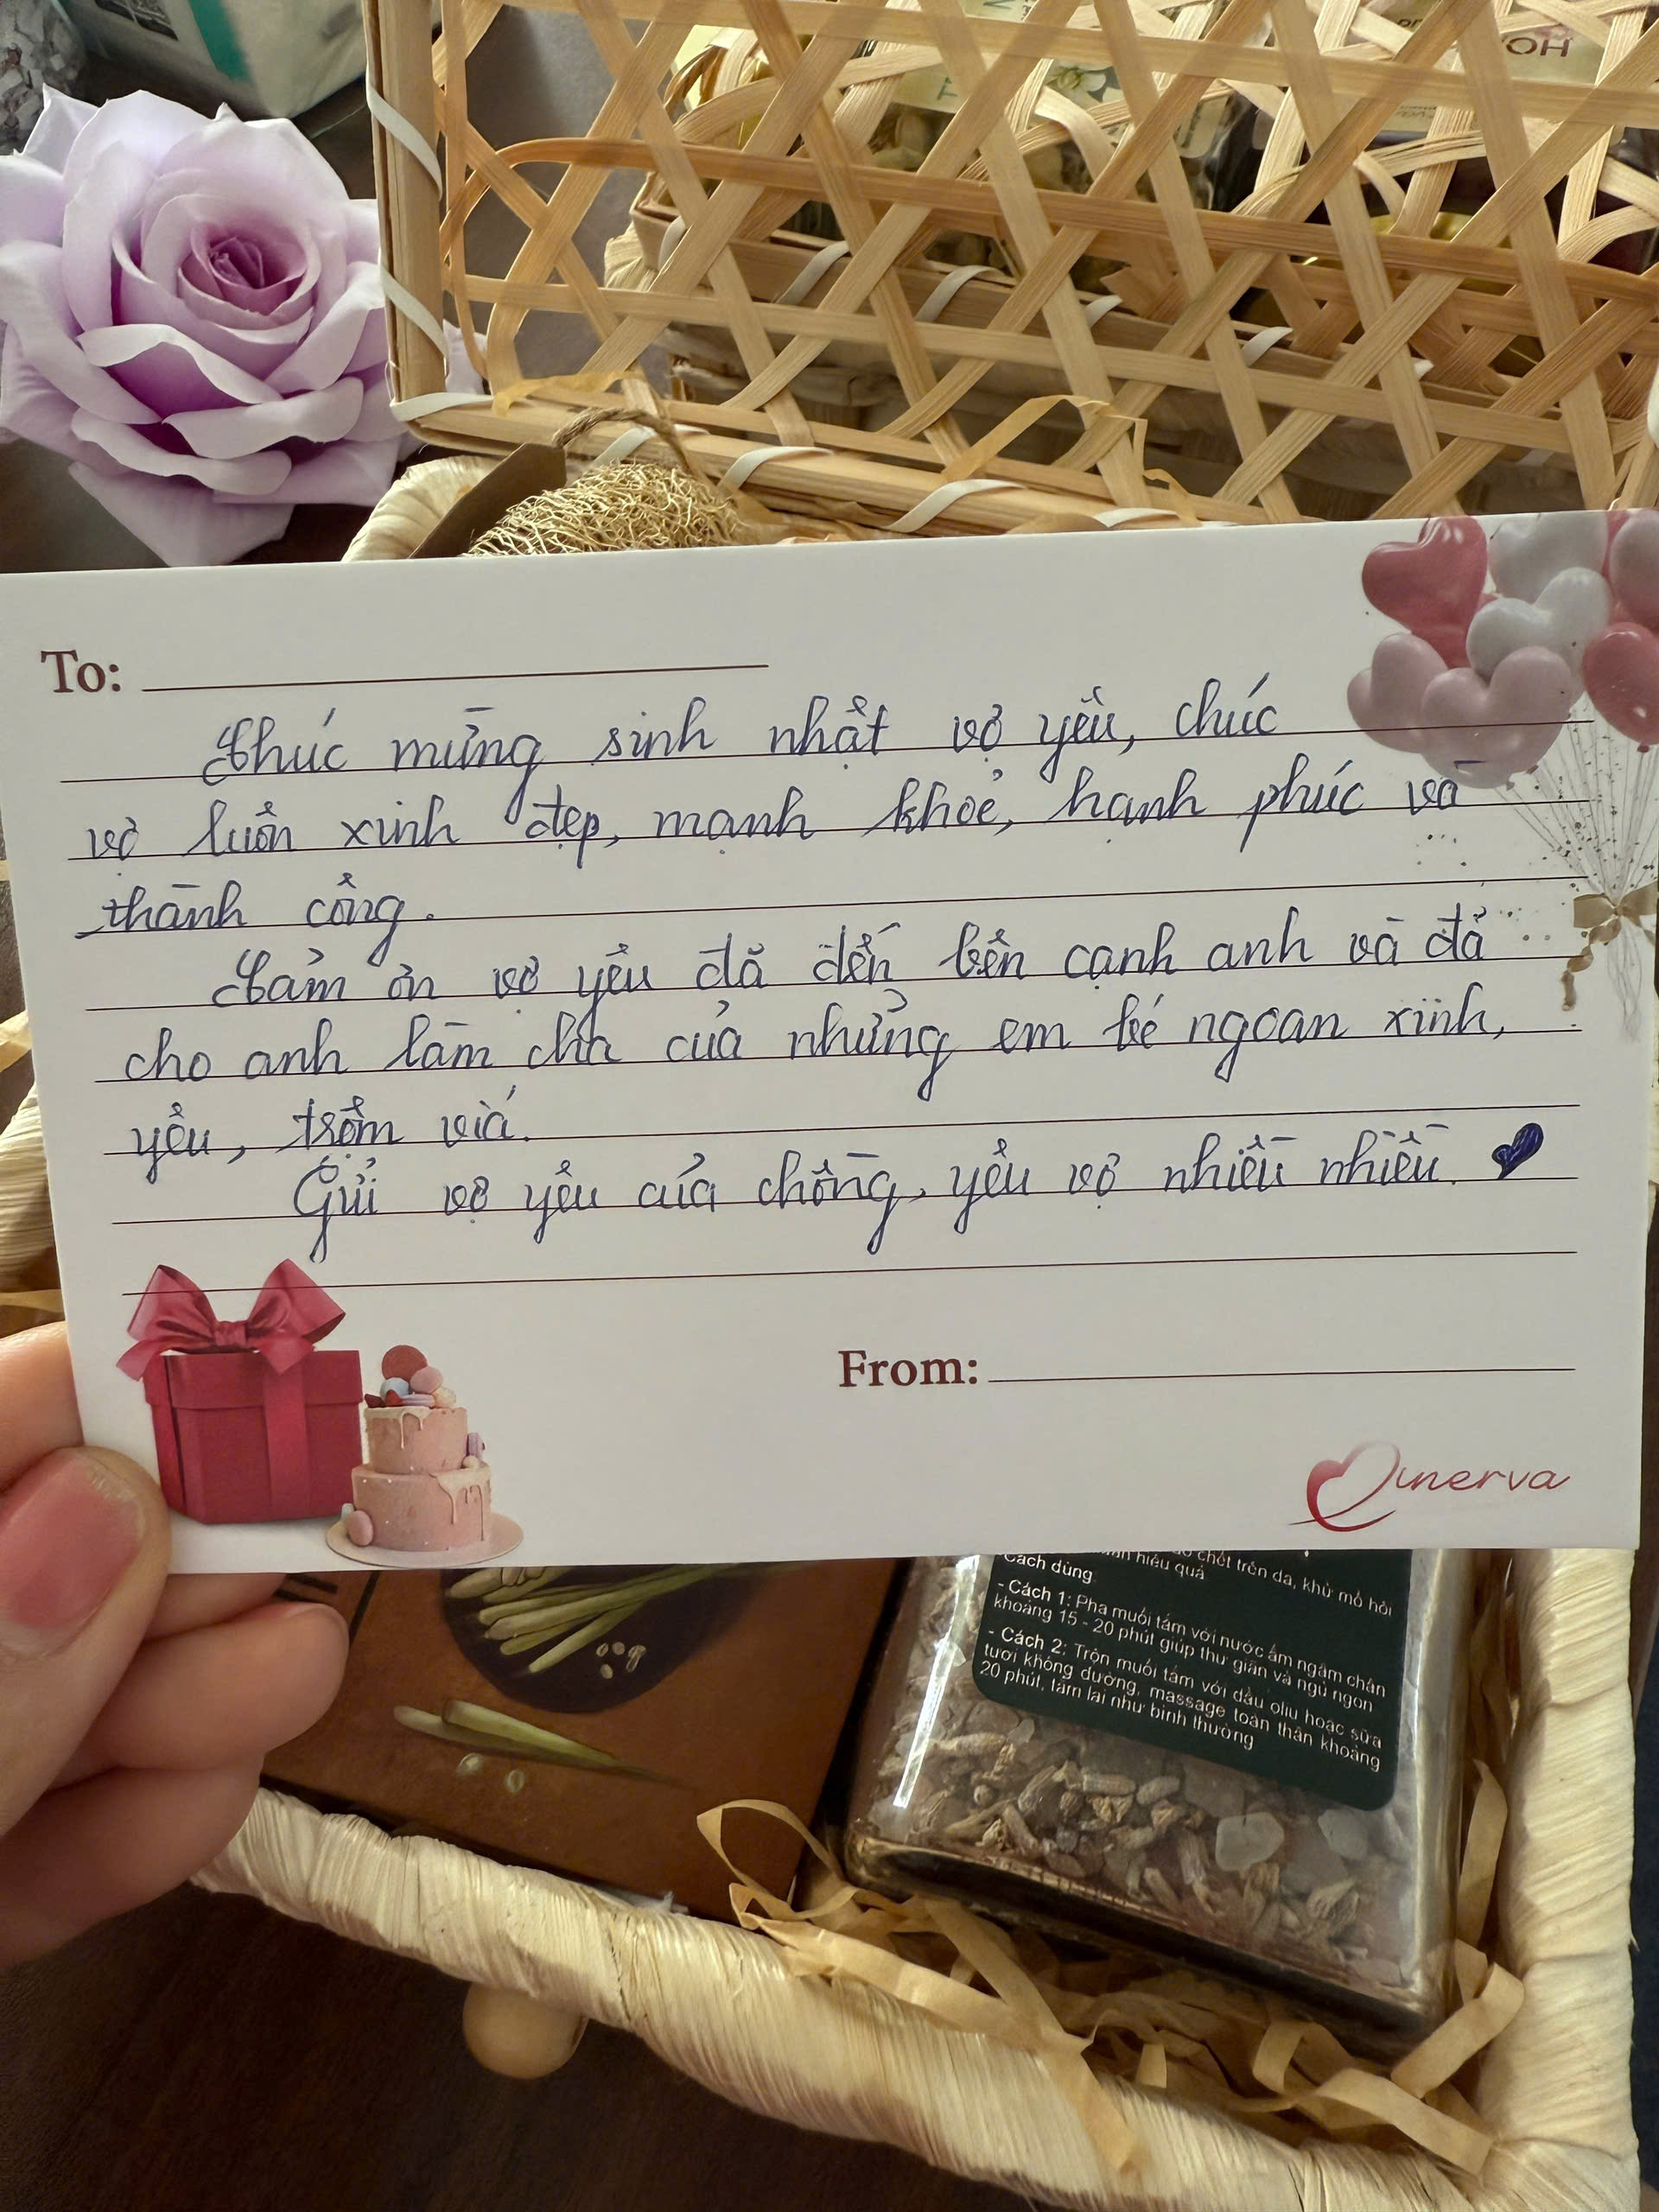 HOA
To:
Chúc mừng sinh nhật vợ yêu, chúc
vợ luôn xinh đẹp, mạnh khoẻ, hạnh phúc và
thành công.
Cảm ơn vợ yêu đã đến bên cạnh anh và đã
cho anh làm cha của những em bé ngoan xinh,
yêu, trộm vía.
Gửi vợ yêu của chồng, yêu vợ nhiều nhiều.
From:
Minerva
chết trên da, khử mồ hôi
hiệu quả
Cách dùng
- Cách 1: Pha muối tắm với nước ấm ngâm chân
khoảng 15 - 20 phút giúp thư giãn và ngủ ngon
- Cách 2: Trộn muối tắm với dầu oliu hoặc sữa
tươi không đường, massage toàn thân khoảng
20 phút, tắm lại như bình thường